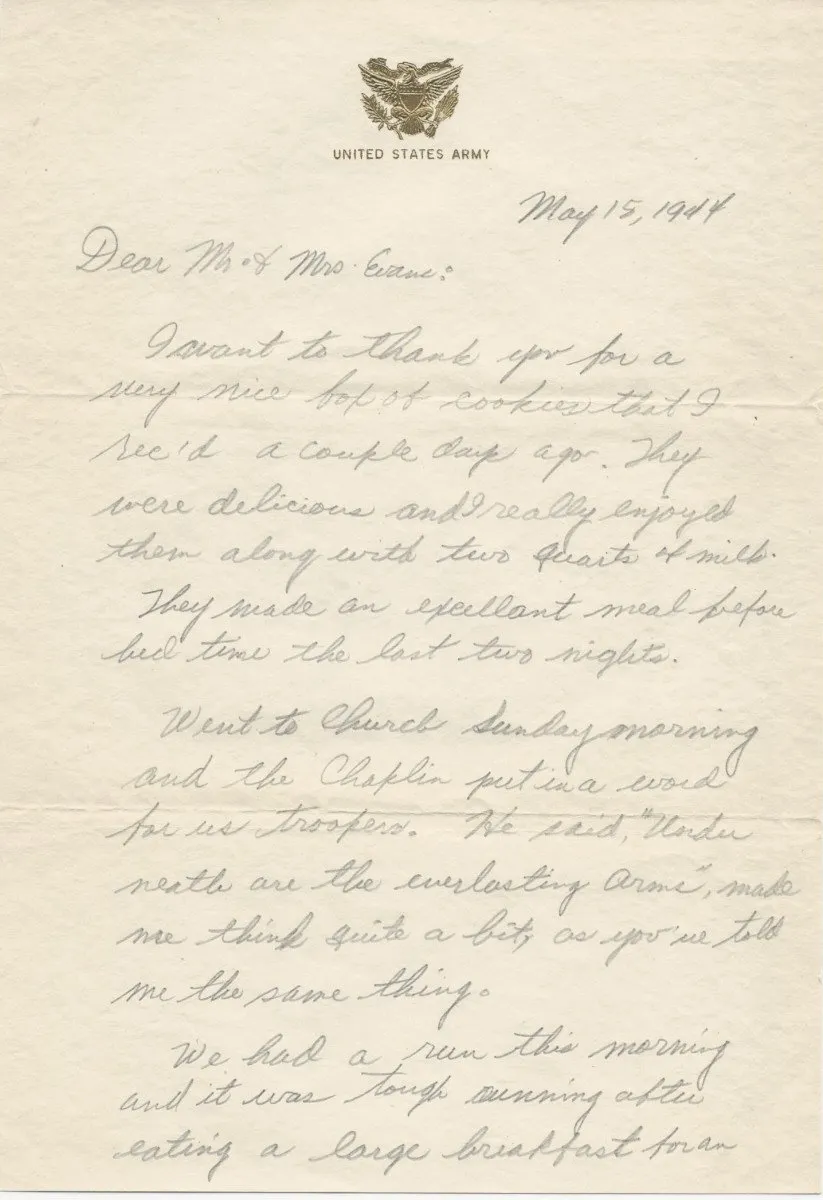 UNITED STATES ARMY
May 15, 1944
Dear Mr. & Mrs. Evans:
I want to thank you for a
very nice box of cookies that I
rec'd a couple days ago. They
were delicious and I really enjoyed
them along with two quarts of milk.
They made an excellant meal before
bed time the last two nights.
Went to Church Sunday morning
and the Chaplin put in a word
for us troopers. He said, "Under
neath are the everlasting Arms", made
me think quite a bit, as you've told
me the same thing.
We had a run this morning
and it was tough running after
eating a large breakfast for an